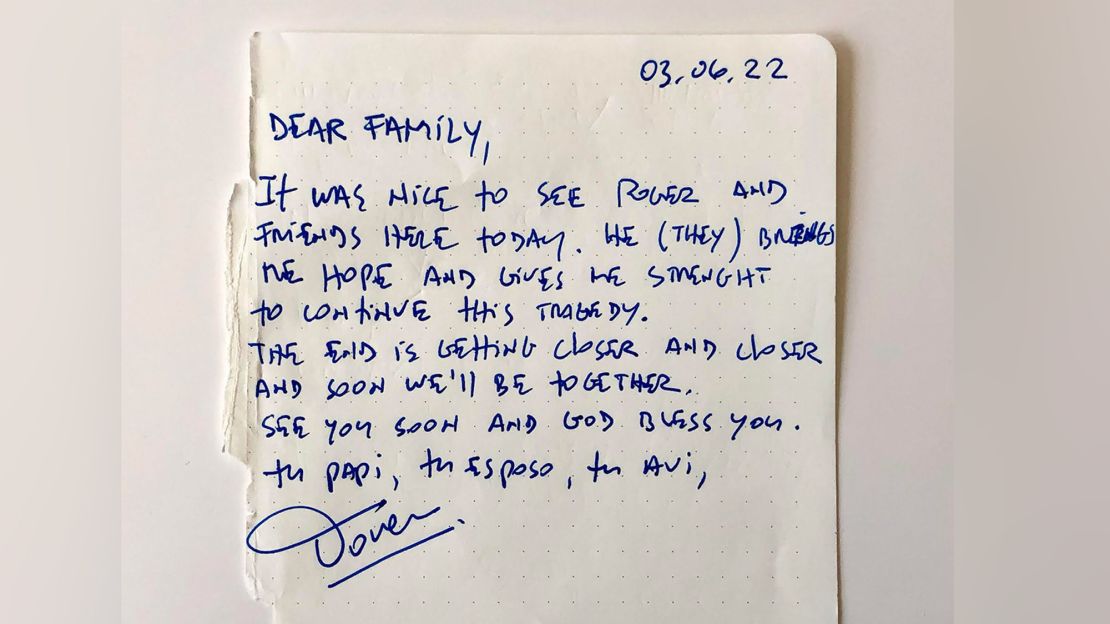 03.06.22
DEAR FAMILY,
It WAS NICE to SEE ROGER AND
FRIENDS HERE TODAY. HE (THEY) BRINGS
ME HOPE AND GIVES ME STRENGHT
to CONTINUE this TRAGEDY.
THE END IS GETTING CLOSER AND CLOSER
AND SOON WE'll BE TOGETHER.
SEE YOU SOON AND GOD BLESS YOU.
tu PAPI, tu ESPOSO, tu AVI,